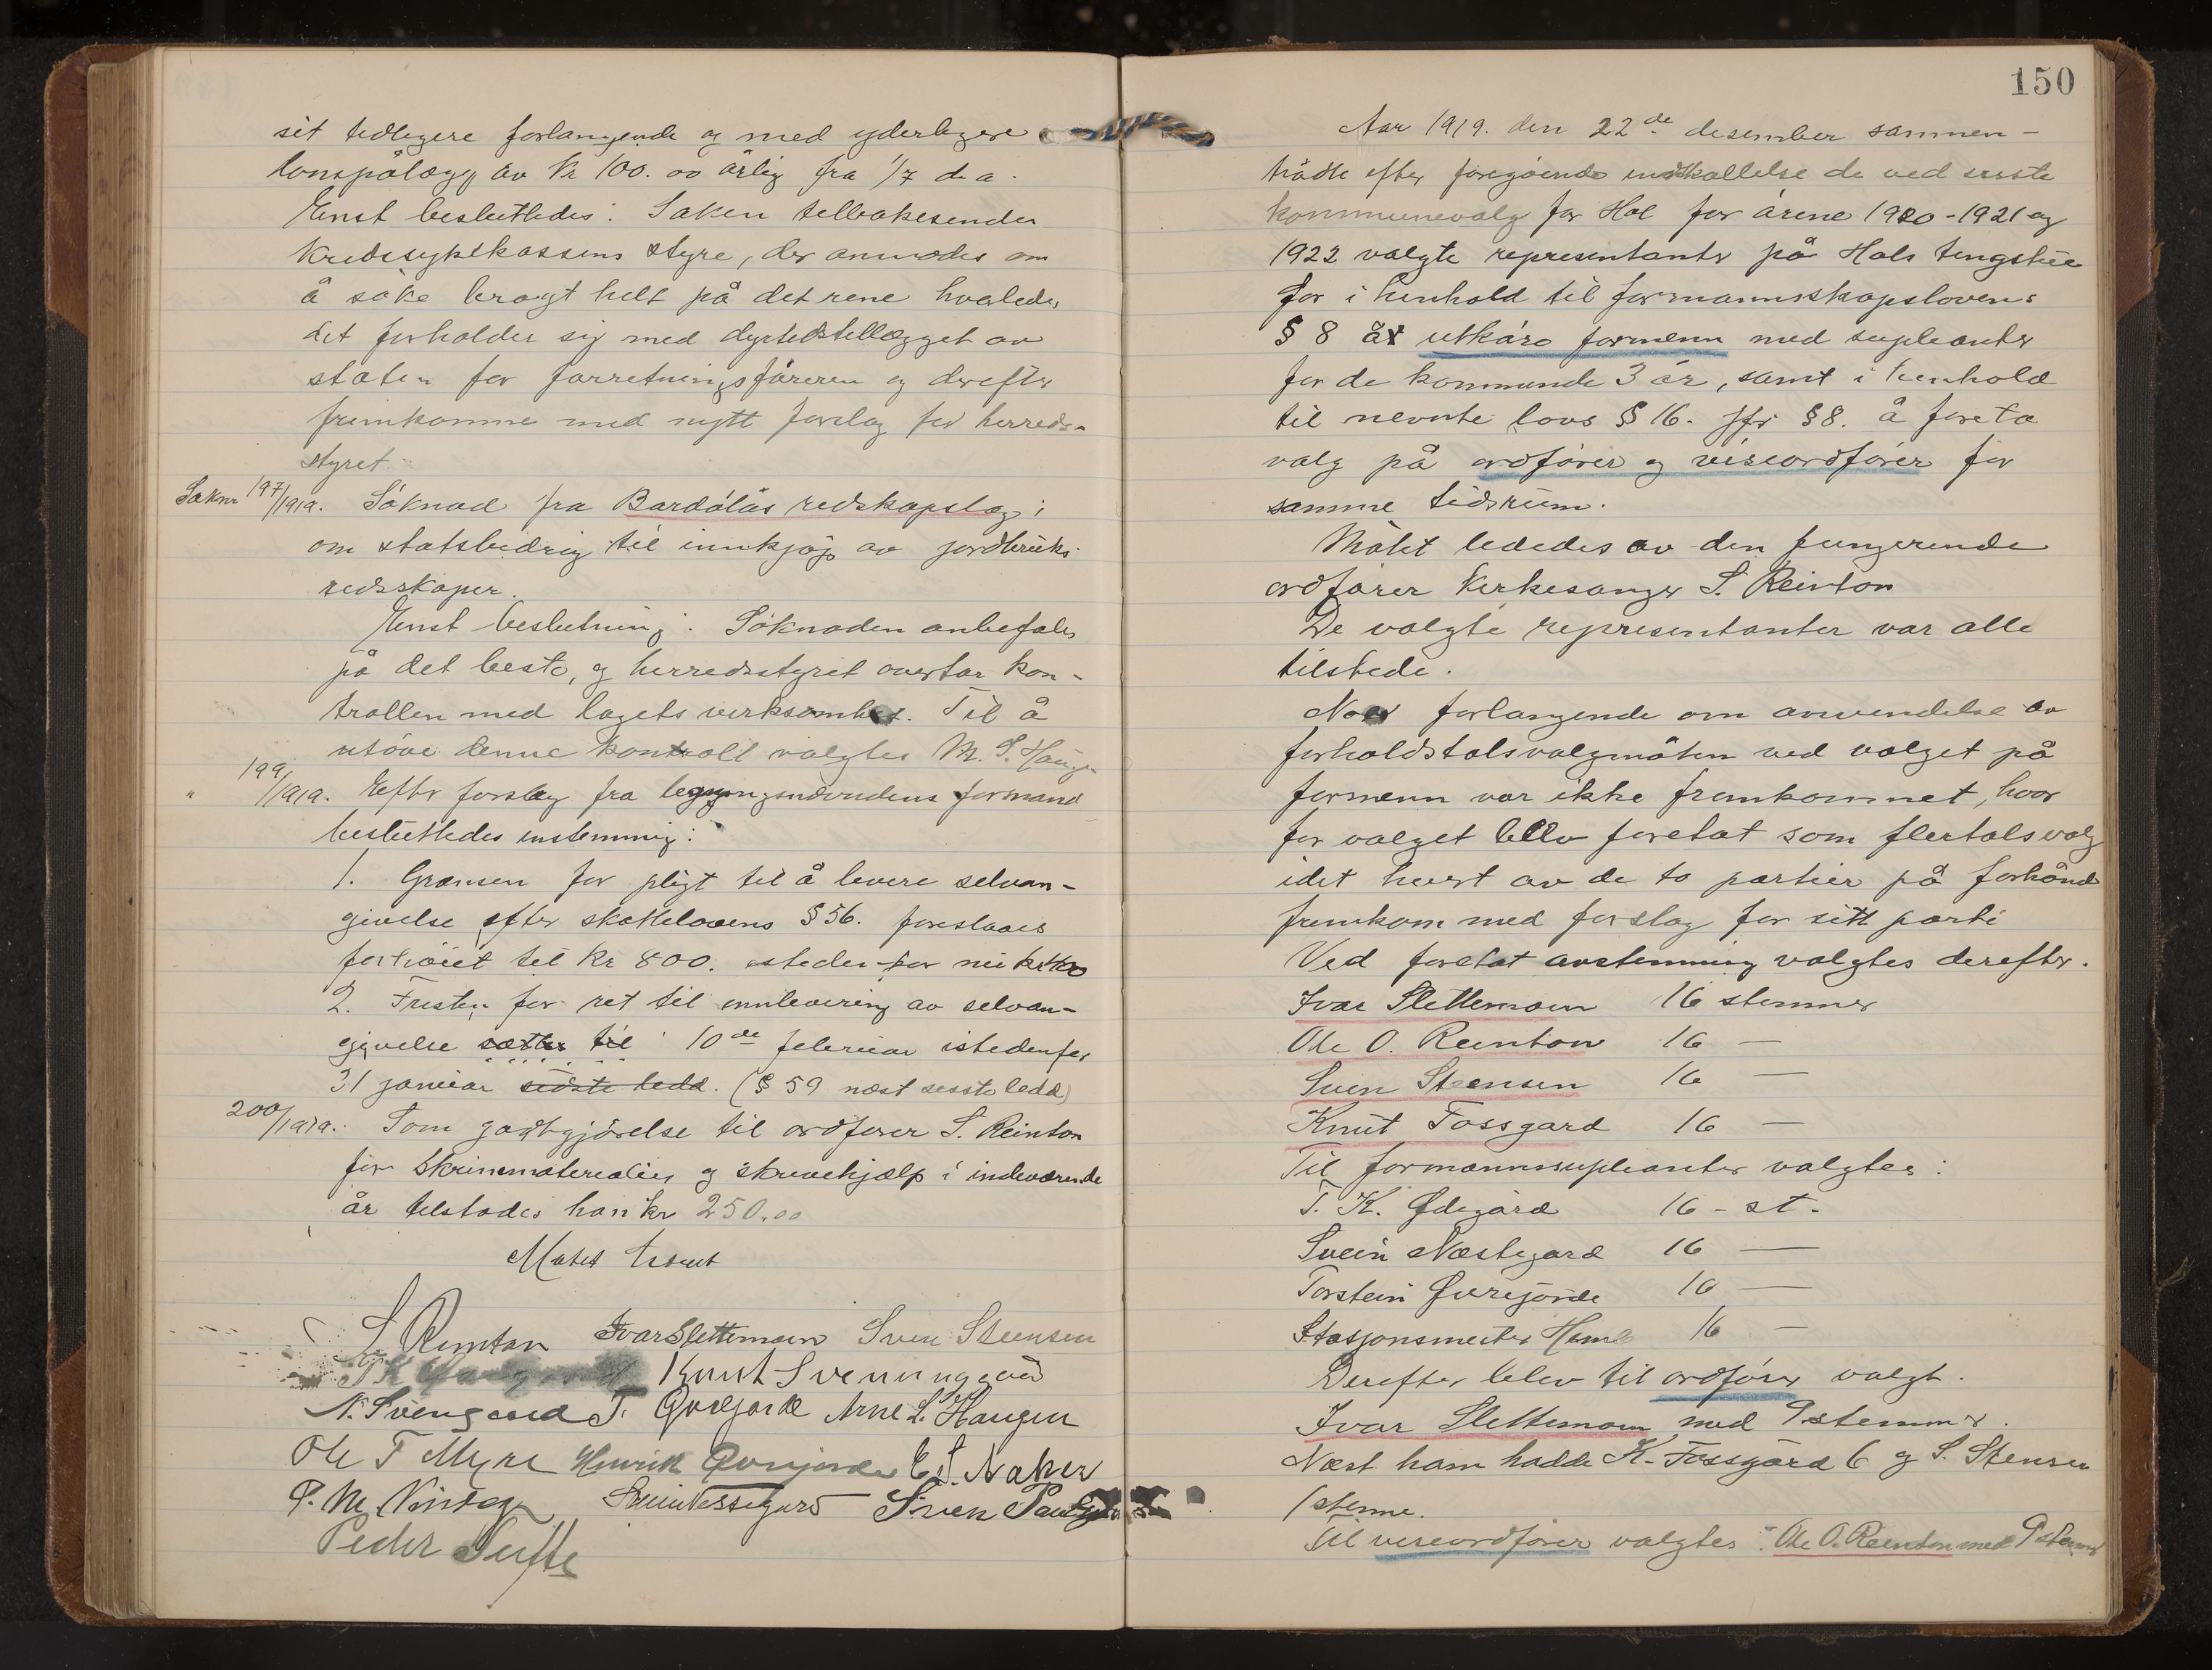 sit tidligere forlangende og med yderligere
lønspålægg av Kr 100.00 årlig fra 1/7 d.a.
Enst besluttedes: Saken tilbakesendes
Kredssykekassens styre, der anmodes om
å söke bragt helt på det rene hvorledes
det forholder sig med dyrtidstillægget av
staten for forretningsföreren og derefter
fremkomme med nytt forslag for herreds-
styret.
Saknr 197/1919. Söknad fra Bardölås redskapslag i
om statsbidrag til innkjöp av jordbruks-
redskaper.
Enst beslutning: Söknaden anbefales
på det beste, og herredsstyret overtar kon-
trollen med lagets verksomhet. Til å
utöve denne kontroll valgtes M. S. Haugen
" 199/1919. Efter forslag fra ligningsnævndens formand
besluttedes enstemmig:
1. Grænsen for pligt til å levere selvan-
givelse efter skattelovens § 56. foreslaaes
forhöiet til Kr 800. isteden for nu kr 400
2. Fristen for ret til innlevering av selvan-
givelse sættes til 10de februar istedenfor
31 januar sidste ledd. (§ 59 næst sisste ledd)
200/1919. Som godtgjörelse til ordförer S. Reinton
for skrivematerialier og skrivehjælp i indeværende
år tilstodes han kr 250.00
Mötet hevet
S Reinton Ivar Slettemoen Sven Stensen
Knut Svenunggard
N. Svengaard T. Qvrejorde Arne L. Haugen
Ole T Myre Henrik Qvrejorde E S. Naker
P. M. Svein Nestegard Sven
Peder Tufte
150
Aar 1919. den 22de desember sammen-
trådte efter foregående innkallelse de ved siste
kommunevalg for Hol for årene 1920-1921 og
1922 valgte representanter på Hols tingstue
for i henhold til formannskapslovens
§ 8 å utkåre formenn med supleanter
for de kommende 3 år, samt i henhold
til nevnte lovs § 16. jfr § 8. å foreta
valg på ordförer og viseordförer for
samme tidsrum.
Mötet lededes av den fungerende
ordförer Kirkesanger S. Reinton
De valgte representanter var alle
tilstede.
Noe forlangende om anvendelse av
forholdstalsvalgmåten ved valget på
formenn var ikke fremkommet, hvor
for valget blev foretat som flertalsvalg
idet hvert av de to partier på forhånd
fremkom med forslag for sitt parti
Ved foretat avstemning valgtes derefter.
Ivar Slettemoen 16 stemmer
Ole O. Reinton 16 —
Sven Stensen 16 —
Knut Fossgard 16 —
Til formannssupleanter valgtes:
T. K. Ødegård 16 - st.
Svein Næstegard 16 —
Torstein Øvrejorde 16 —
Stasjonsmester 16 —
Derefter blev til ordförer valgt.
Ivar Slettemoen med 9 stemmer.
Næst ham hadde K. Fossgård 6 og S. Stensen
1 stemme.
Til viseordförer valgtes: Ole O. Reinton med 9 stemmer